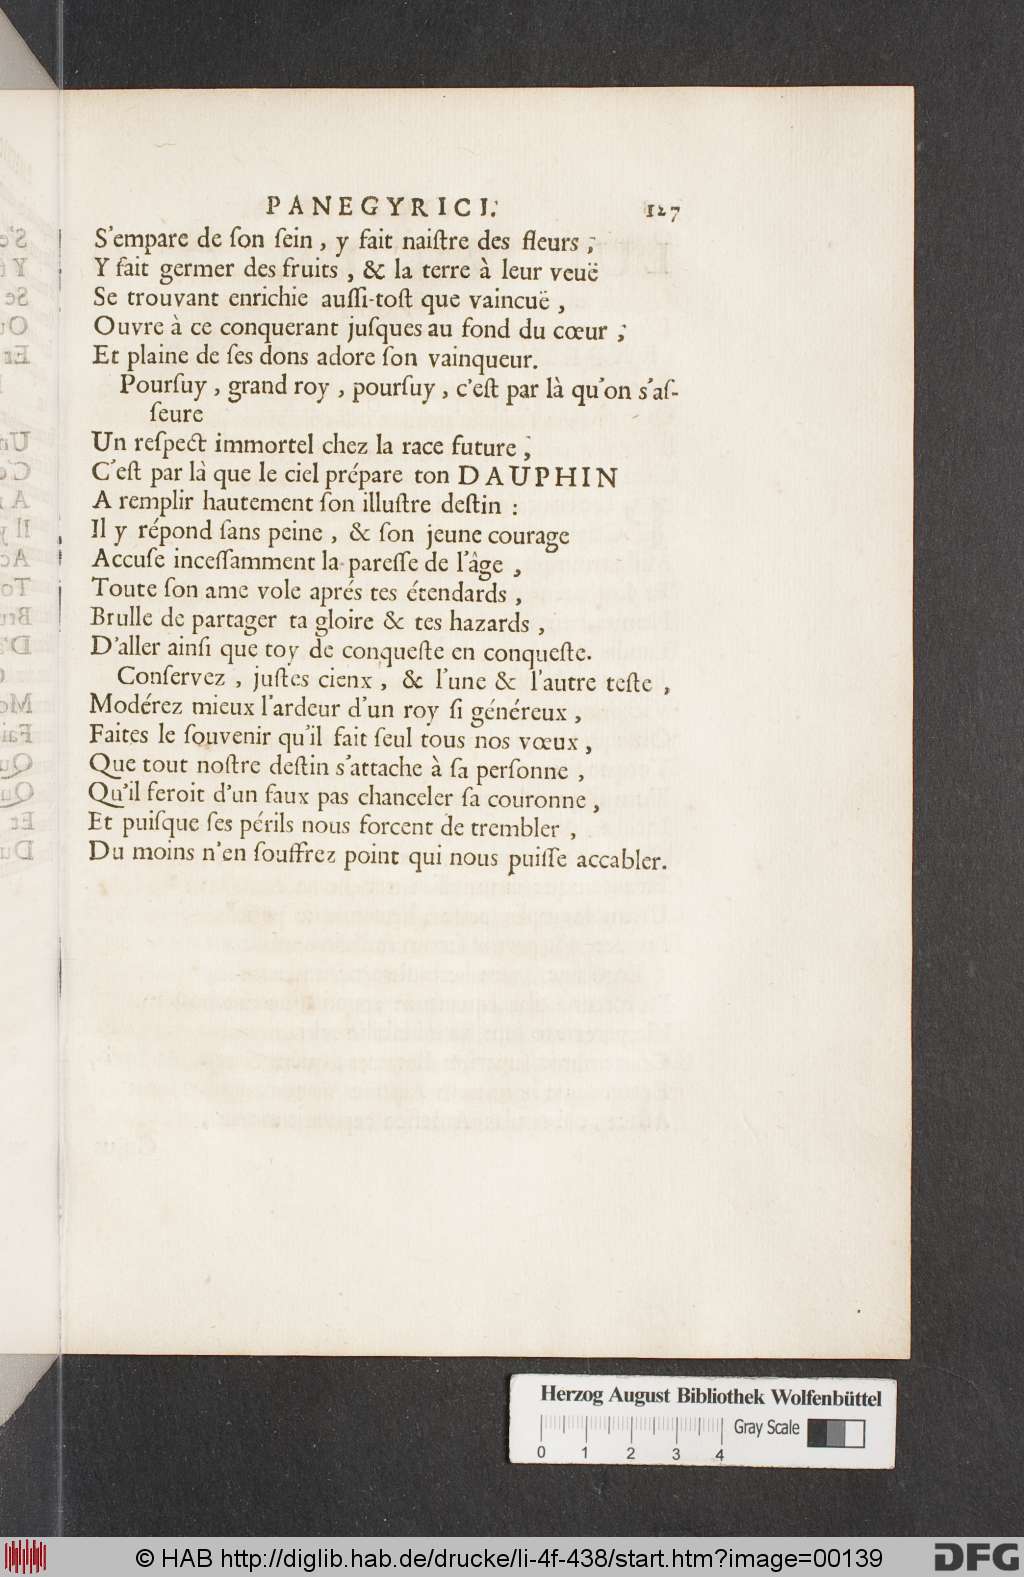 PANEGYRICI. 127
S'empare de ſon ſein, y fait naiſtre des fleurs;
Y fait germer des fruits, & la terre à leur veuë
Se trouvant enrichie auſſi-toſt que vaincuë,
Ouvre à ce conquerant juſques au fond du cœur;
Et plaine de ſes dons adore ſon vainqueur.
Pourſuy, grand roy, pourſuy, c'eſt par là qu'on s'aſ-
ſeure
Un reſpect immortel chez la race future;
C'eſt par là que le ciel prépare ton DAUPHIN
A remplir hautement ſon illuſtre deſtin:
Il y répond ſans peine, & ſon jeune courage
Accuſe inceſſamment la pareſſe de l'âge,
Toute ſon ame vole aprés tes étendards,
Brulle de partager ta gloire & tes hazards,
D'aller ainſi que toy de conqueſte en conqueſte.
Conſervez, juſtes cienx, & l'une & l'autre teſte,
Modérez mieux l'ardeur d'un roy ſi généreux,
Faites le ſouvenir qu'il fait ſeul tous nos vœux,
Que tout noſtre deſtin s'attache à ſa perſonne,
Qu'il feroit d'un faux pas chanceler ſa couronne,
Et puiſque ſes périls nous forcent de trembler,
Du moins n'en ſouffrez point qui nous puiſſe accabler.
Herzog August Bibliothek Wolfenbüttel
Gray Scale
0 1 2 3 4
© HAB http://diglib.hab.de/drucke/li-4f-438/start.htm?image=00139
DFG